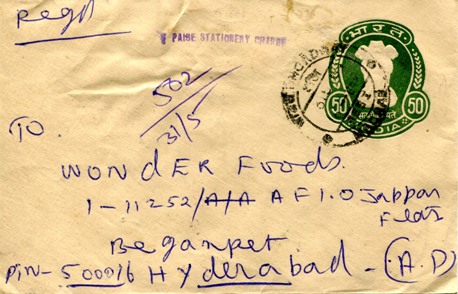 Regd
5 PAISE STATIONERY CHARGE
भारत
50 50
INDIA
502
31/5
TO.
WONDER Foods.
1-11252/A/A A F1.0 Jabbar
Flats
Beganpet
PIN-500016 Hyderabad - (A.P)